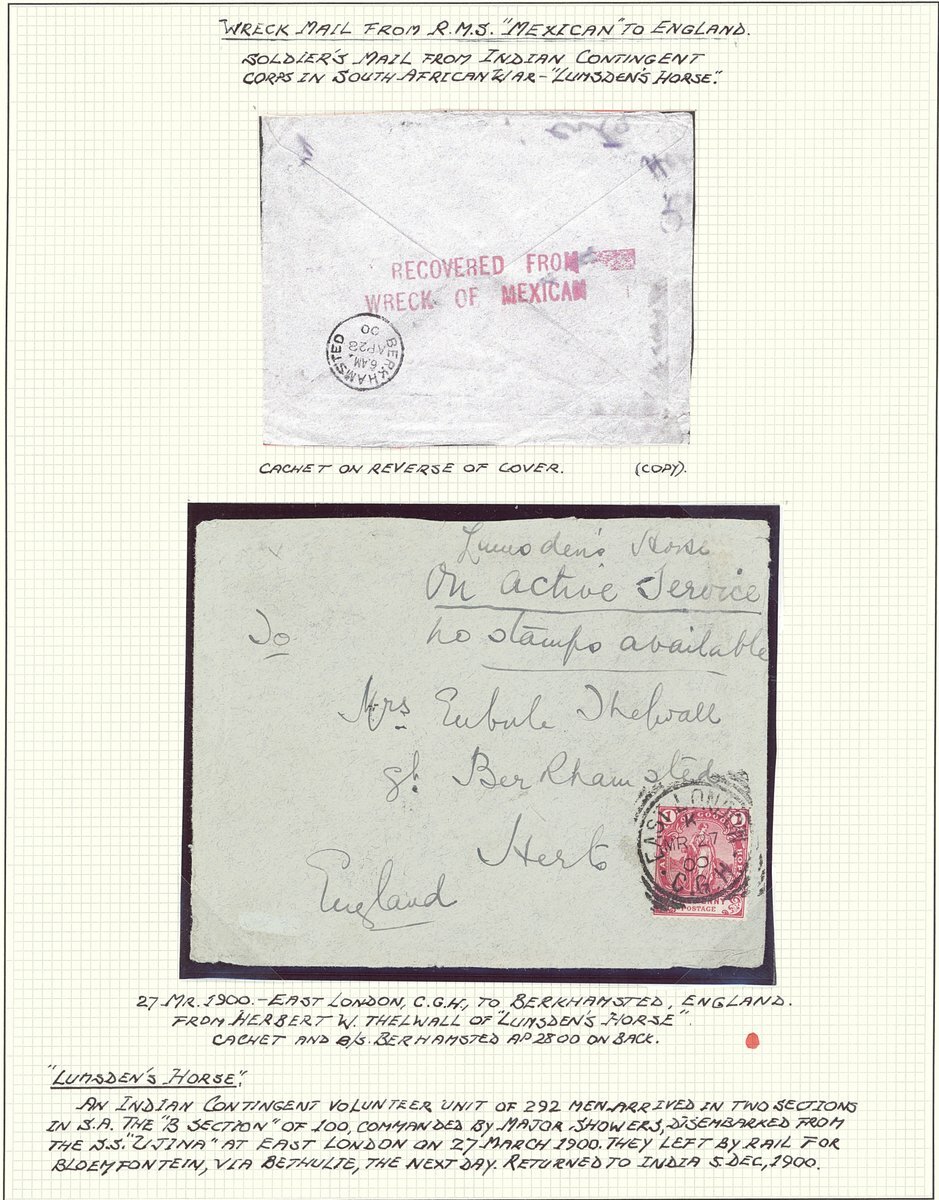 WRECK MAIL FROM R.M.S. "MEXICAN" TO ENGLAND.
SOLDIER'S MAIL FROM INDIAN CONTINGENT
CORPS IN SOUTH AFRICAN WAR – "LUMSDEN'S HORSE".
RECOVERED FROM
WRECK OF MEXICAN
BERKHAMSTED
6.AM.
AP 28
00
CACHET ON REVERSE OF COVER. (COPY).
Lumsden's Horse
On Active Service
no stamps available
To
Mrs Eubule Thelwall
gt. Berkhamsted
Herts
England
EAST LONDON
K
MR 27
00
C.G.H.
POSTAGE
27 MR. 1900. – EAST LONDON, C.G.H., TO BERKHAMSTED, ENGLAND.
FROM HERBERT W. THELWALL OF "LUMSDEN'S HORSE".
CACHET AND B/S. BERHAMSTED AP 28 00 ON BACK.
"LUMSDEN'S HORSE".
AN INDIAN CONTINGENT VOLUNTEER UNIT OF 292 MEN ARRIVED IN TWO SECTIONS
IN S.A. THE "B SECTION" OF 100, COMMANDED BY MAJOR SHOWERS, DISEMBARKED FROM
THE S.S. "UJINA" AT EAST LONDON ON 27 MARCH 1900. THEY LEFT BY RAIL FOR
BLOEMFONTEIN, VIA BETHULIE, THE NEXT DAY. RETURNED TO INDIA 5 DEC, 1900.